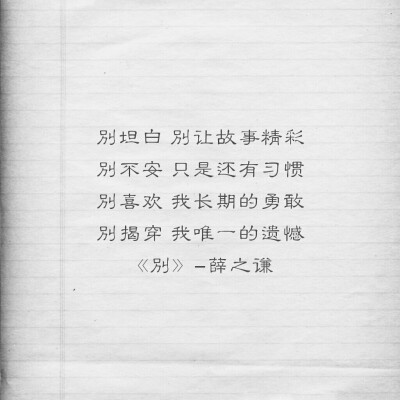 別坦白 別让故事精彩
別不安 只是还有习惯
別喜欢 我长期的勇敢
別揭穿 我唯一的遗憾
《別》-薛之谦